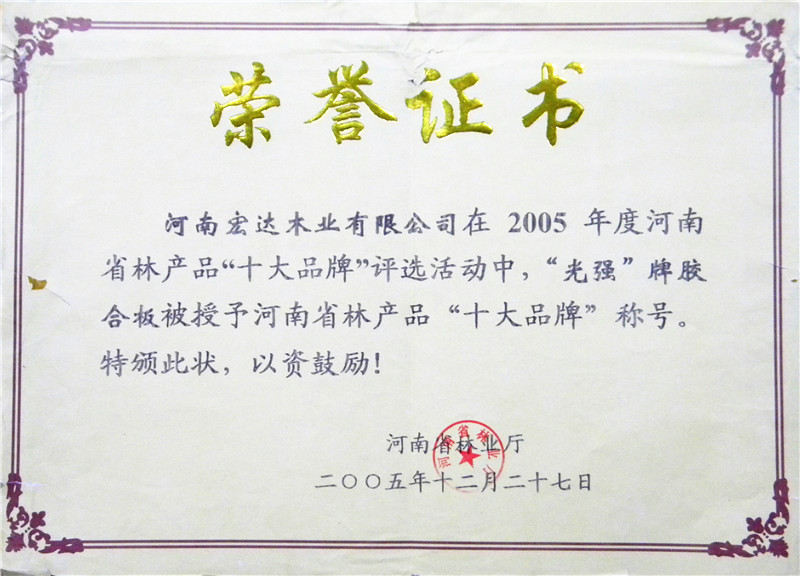 荣誉证书
河南宏达木业有限公司在 2005 年度河南
省林产品“十大品牌”评选活动中，“光强”牌胶
合板被授予河南省林产品“十大品牌”称号。
特颁此状，以资鼓励！
河南省林业厅
二〇〇五年十二月二十七日
河南省林业厅